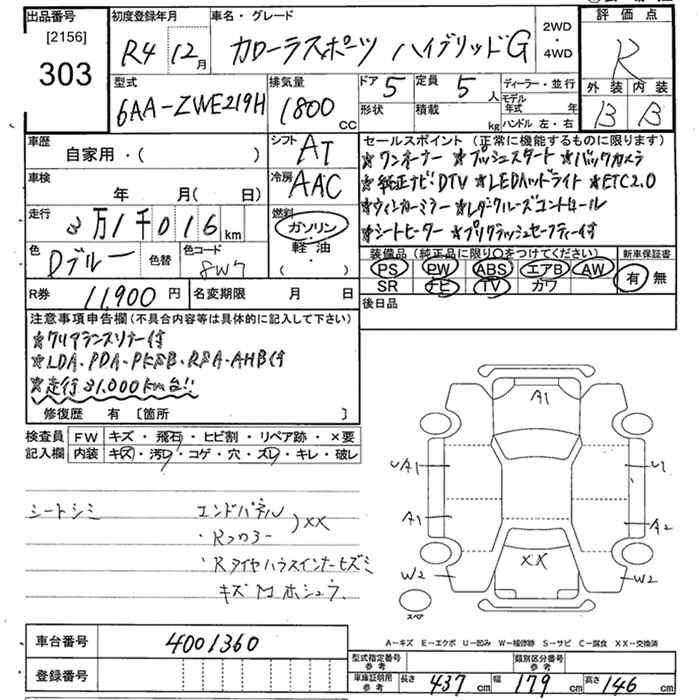 出品番号 初度登録年月 車名・グレード 評価点
[2156] R4 12月 カローラスポーツ ハイブリッドG 2WD・4WD R
303
型式 排気量 ドア 5 定員 5人 ディーラー・並行 外装 内装
6AA-ZWE219H 1800cc 形状 積載 kg モデル年式 年 B B
ハンドル 左・右
車歴 自家用・( ) シフト AT セールスポイント (正常に機能するものに限ります)
★ワンオーナー ★プッシュスタート ★バックカメラ
車検 年 月( 日) 冷房 AAC ★純正ナビ!DTV ★LEDヘッドライト ★ETC2.0
★ウィンカーミラー ★レダクルーズコントロール
走行 3万1千016km 燃料 ガソリン・軽油・( ) ★シートヒーター ★プリクラッシュセーフティー付
色 Dブルー 色替 色コード 8W7 装備品 (純正品に限り〇をつけてください) 新車保証書
PS PW ABS エアB AW 有 無
SR ナビ TV カワ
R券 11,900円 名変期限 月 日 後日品
注意事項申告欄(不具合内容等は具体的に記入して下さい)
★クリアランスソナー付
★LDA、PDA、PKSB、RSA、AHB付
★走行31,000km台!!
修復歴 有 [箇所 ]
検査員 FW キズ・飛石・ヒビ割・リペア跡・×要
記入欄 内装 キズ・汚レ・コゲ・穴・スレ・キレ・破レ
A1
UA1 U1
A1 A2
XX
W2 W2
スペア
シートシミ エンドパネル
・Rフロアー )XX
・Rタイヤハウスインナーヒズミ
キズ 凹 ホシュウ
A-キズ E-エクボ U-凹み W-補修跡 S-サビ C-腐食 XX-交換済
車台番号 4001360
登録番号
型式指定番号 参考 類別区分番号 参考
車庫証明用 参考 長さ 437cm 幅 179cm 高さ 146cm